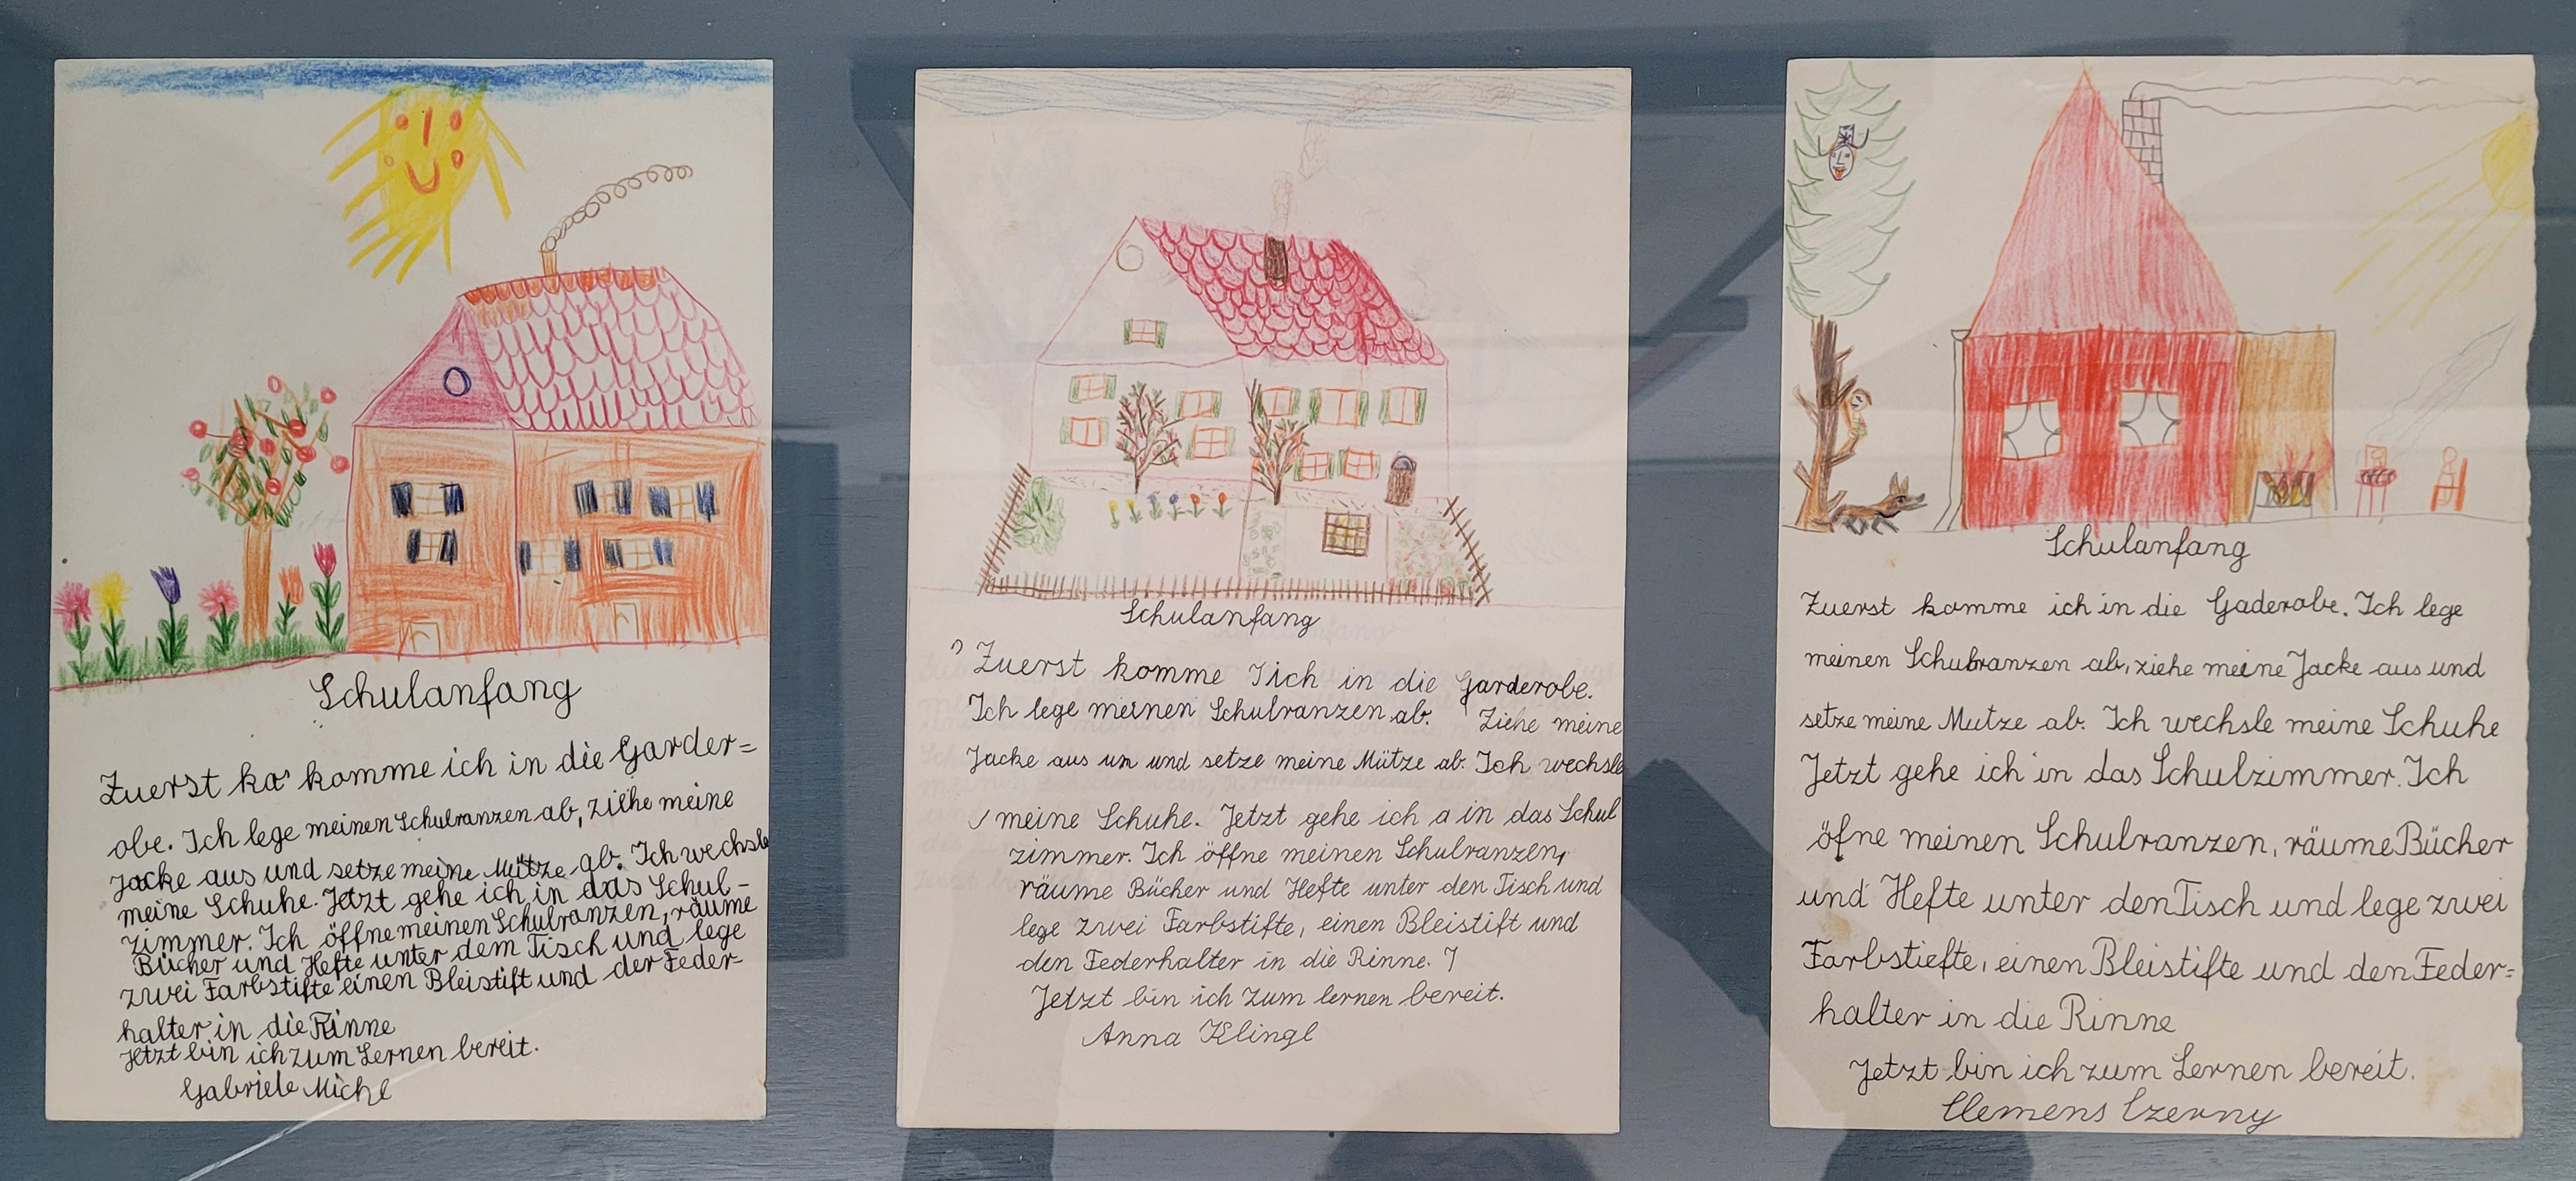 Schulanfang
Zuerst ka' komme ich in die Garder=
obe. Ich lege meinen Schulranzen ab, ziehe meine
Jacke aus und setze meine Mütze ab. Ich wechsle
meine Schuhe. Jetzt gehe ich in das Schul-
zimmer. Ich öffne meinen Schulranzen, räume
Bücher und Hefte unter dem Tisch und lege
zwei Farbstifte einen Bleistift und der Feder-
halter in die Rinne
Jetzt bin ich zum Lernen bereit.
Gabriele Michl
Schulanfang
Zuerst komme Iich in die Garderobe.
Ich lege meinen Schulranzen ab. Ziehe meine
Jacke aus un und setze meine Mütze ab. Ich wechsle
meine Schuhe. Jetzt gehe ich a in das Schul
zimmer. Ich öffne meinen Schulranzen,
räume Bücher und Hefte unter den Tisch und
lege zwei Farbstifte, einen Bleistift und
den Federhalter in die Rinne.
Jetzt bin ich zum lernen bereit.
Anna Klingl
Schulanfang
Zuerst komme ich in die Gaderobe. Ich lege
meinen Schulranzen ab, ziehe meine Jacke aus und
setze meine Mutze ab. Ich wechsle meine Schuhe
Jetzt gehe ich in das Schulzimmer. Ich
öfne meinen Schulranzen, räume Bücher
und Hefte unter den Tisch und lege zwei
Farbstiefte, einen Bleistifte und den Feder=
halter in die Rinne
Jetzt bin ich zum Lernen bereit.
Clemens Czerny